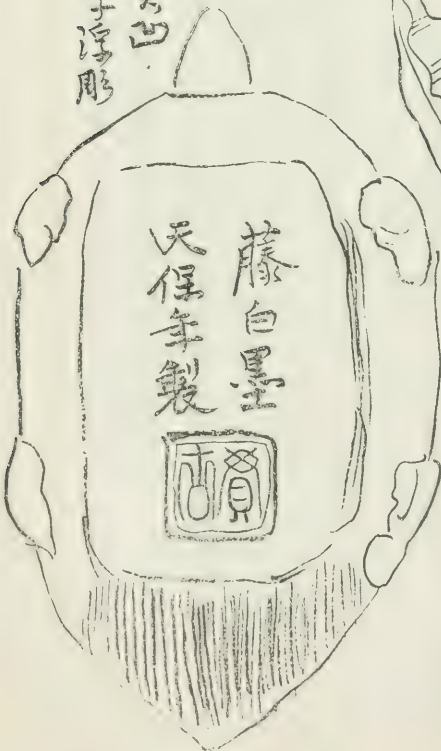 凹
字浮彫
藤白墨
天保年製